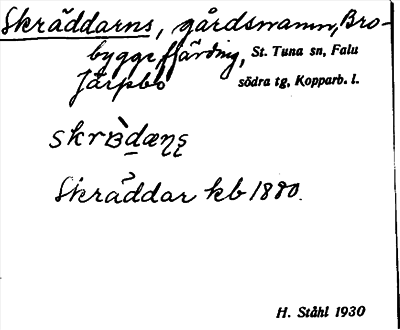 Skräddarns, gårdsnamn, Bro-
bygge fjärding, St. Tuna sn, Falu
Järpbo södra tg, Kopparb. l.
skrὰdæɳʂ
Skräddar kb 1880.
H. Ståhl 1930